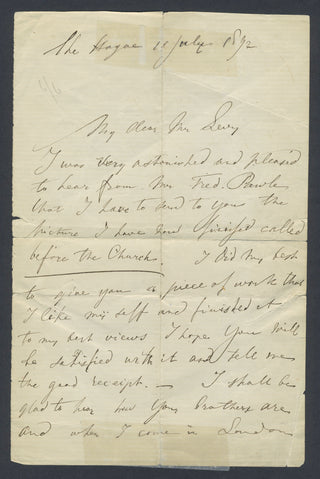 The Hague 11 July 1892
My dear Mr Levy
I was very astonished and pleased
to hear from Mr Fred. Pawle
that I have to send to you the
picture I have finished called
before the Church. I did my best
to give you a piece of work that
I like my self and finished it
to my best views I hope you will
be satisfied with it and tell me
the good receipt. — I shall be
glad to hear how your brothers are
and when I come in London